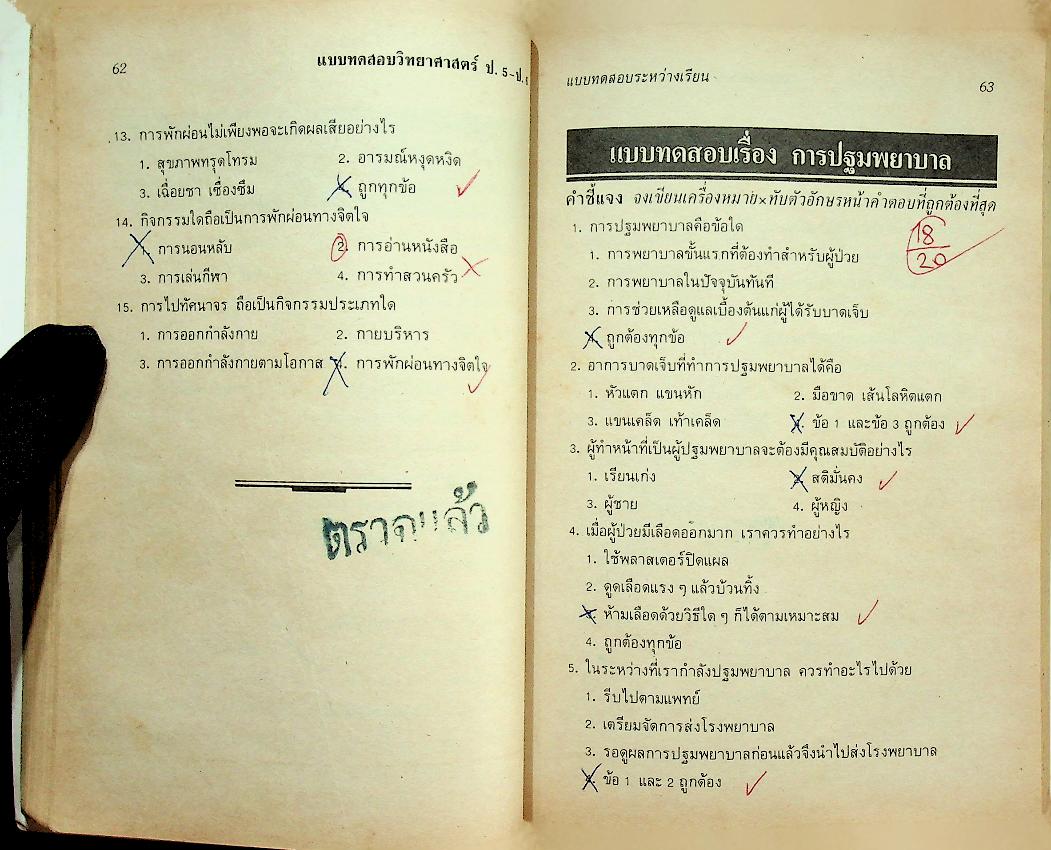 62
แบบทดสอบวิทยาศาสตร์ ป. 5-ป.
13. การพักผ่อนไม่เพียงพอจะเกิดผลเสียอย่างไร
1. สุขภาพทรุดโทรม 2. อารมณ์หงุดหงิด
3. เฉื่อยชา เซื่องซึม 4. ถูกทุกข้อ
14. กิจกรรมใดถือเป็นการพักผ่อนทางจิตใจ
1. การนอนหลับ 2. การอ่านหนังสือ
3. การเล่นกีฬา 4. การทำสวนครัว
15. การไปทัศนาจร ถือเป็นกิจกรรมประเภทใด
1. การออกกำลังกาย 2. กายบริหาร
3. การออกกำลังกายตามโอกาส 4. การพักผ่อนทางจิตใจ
ตรวจแล้ว
แบบทดสอบระหว่างเรียน
63
แบบทดสอบเรื่อง การปฐมพยาบาล
คำชี้แจง จงเขียนเครื่องหมาย×ทับตัวอักษรหน้าคำตอบที่ถูกต้องที่สุด
18
20
1. การปฐมพยาบาลคือข้อใด
1. การพยาบาลขั้นแรกที่ต้องทำสำหรับผู้ป่วย
2. การพยาบาลในปัจจุบันทันที
3. การช่วยเหลือดูแลเบื้องต้นแก่ผู้ได้รับบาดเจ็บ
4. ถูกต้องทุกข้อ
2. อาการบาดเจ็บที่ทำการปฐมพยาบาลได้คือ
1. หัวแตก แขนหัก 2. มือขาด เส้นโลหิตแตก
3. แขนเคล็ด เท้าเคล็ด 4. ข้อ 1 และข้อ 3 ถูกต้อง
3. ผู้ทำหน้าที่เป็นผู้ปฐมพยาบาลจะต้องมีคุณสมบัติอย่างไร
1. เรียนเก่ง 2. สติมั่นคง
3. ผู้ชาย 4. ผู้หญิง
4. เมื่อผู้ป่วยมีเลือดออกมาก เราควรทำอย่างไร
1. ใช้พลาสเตอร์ปิดแผล
2. ดูดเลือดแรง ๆ แล้วบ้วนทิ้ง
3. ห้ามเลือดด้วยวิธีใด ๆ ก็ได้ตามเหมาะสม
4. ถูกต้องทุกข้อ
5. ในระหว่างที่เรากำลังปฐมพยาบาล ควรทำอะไรไปด้วย
1. รีบไปตามแพทย์
2. เตรียมจัดการส่งโรงพยาบาล
3. รอดูผลการปฐมพยาบาลก่อนแล้วจึงนำไปส่งโรงพยาบาล
4. ข้อ 1 และ 2 ถูกต้อง